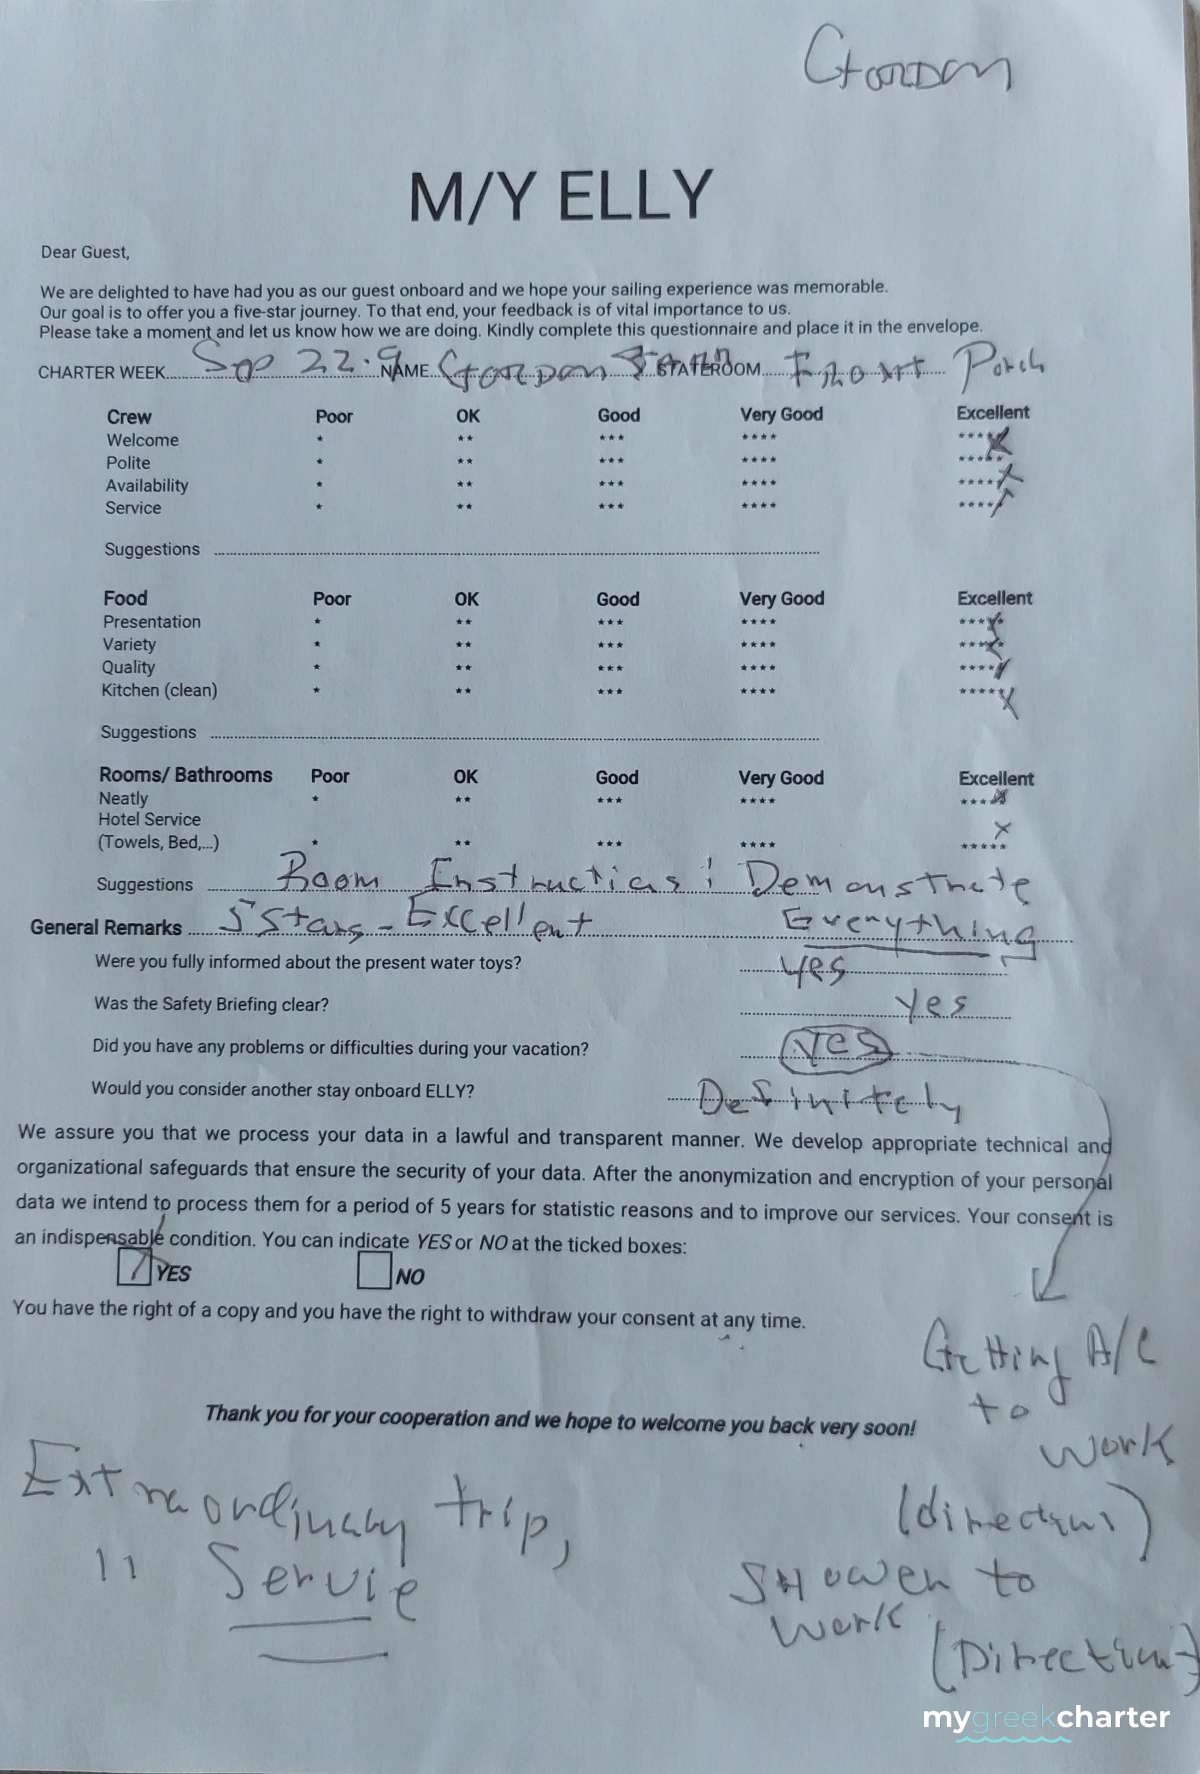 Gordon
M/Y ELLY
Dear Guest,
We are delighted to have had you as our guest onboard and we hope your sailing experience was memorable.
Our goal is to offer you a five-star journey. To that end, your feedback is of vital importance to us.
Please take a moment and let us know how we are doing. Kindly complete this questionnaire and place it in the envelope.
CHARTER WEEK Sep 22 NAME Gordon STATEROOM Front Porch
Crew Poor OK Good Very Good Excellent
Welcome * ** *** **** *****
Polite * ** *** **** *****
Availability * ** *** **** *****
Service * ** *** **** *****
Suggestions
Food Poor OK Good Very Good Excellent
Presentation * ** *** **** *****
Variety * ** *** **** *****
Quality * ** *** **** *****
Kitchen (clean) * ** *** **** *****
Suggestions
Rooms/ Bathrooms Poor OK Good Very Good Excellent
Neatly * ** *** **** *****
Hotel Service
(Towels, Bed,...) * ** *** **** *****
Suggestions Room Instructions: Demonstrate
General Remarks 5 Stars - Excellent Everything
Were you fully informed about the present water toys? yes
Was the Safety Briefing clear? yes
Did you have any problems or difficulties during your vacation? yes
Would you consider another stay onboard ELLY? Definitely
We assure you that we process your data in a lawful and transparent manner. We develop appropriate technical and
organizational safeguards that ensure the security of your data. After the anonymization and encryption of your personal
data we intend to process them for a period of 5 years for statistic reasons and to improve our services. Your consent is
an indispensable condition. You can indicate YES or NO at the ticked boxes:
YES NO
You have the right of a copy and you have the right to withdraw your consent at any time.
Getting A/C
to
work
(directions)
Thank you for your cooperation and we hope to welcome you back very soon!
Extraordinary trip,
" Servie
Shower to
work
(Directions)
mygreekcharter